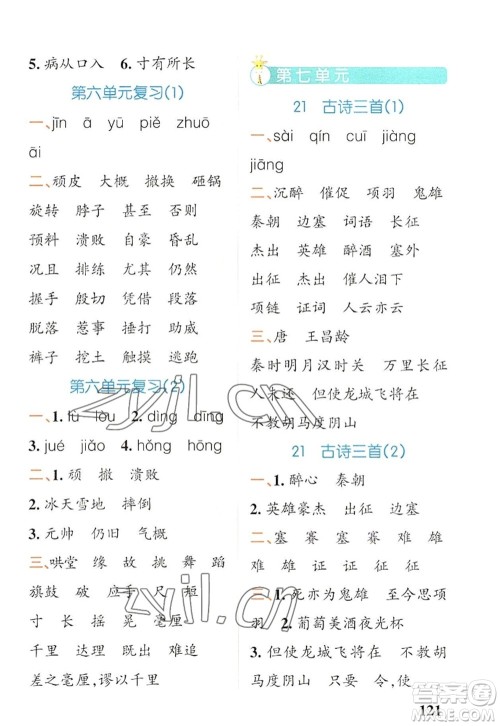 5. 病从口入 6. 寸有所长
第六单元复习(1)
一、jīn ā yū piě zhuō
āi
二、顽皮 大概 撤换 砸锅
旋转 脖子 甚至 否则
预料 溃败 自豪 昏乱
况且 排练 尤其 仍然
握手 凳子 凭借 段落
脱落 惹事 捶打 助威
裤子 挖土 触摸 逃跑
第六单元复习(2)
一、1. fú lǒu 2. dìng dīng
3. jué jiāo 4. hǒng hōng
二、1. 顽 撤 溃败
2. 冰天雪地 摔倒
3. 元帅 仍旧 气概
三、哄堂 缘 故 挑 舞 蹈
旗鼓 破 应手 尺 短
寸 长 摇 晃 毫厘
千里 达理 既 出 难追
差之毫厘,谬以千里
第七单元
21 古诗三首(1)
一、sài qín cuī jiàng
jiāng
二、沉醉 催促 项羽 鬼雄
秦朝 边塞 词语 长征
杰出 英雄 醉酒 塞外
出征 杰作 催人泪下
项链 证词 人云亦云
三、唐 王昌龄
秦时明月汉时关 万里长征
人未还 但使龙城飞将在
不教胡马度阴山
21 古诗三首(2)
一、1. 醉心 秦朝
2. 英雄豪杰 出征 催促
二、塞 赛 寨 难 雄
难 雄 征 证 征
三、1. 死亦为鬼雄 至今思项
羽 2. 葡萄美酒夜光杯
3. 但使龙城飞将在 不教胡
马度阴山 只要 令 使
zyjl.cn
zyjl.cn
121